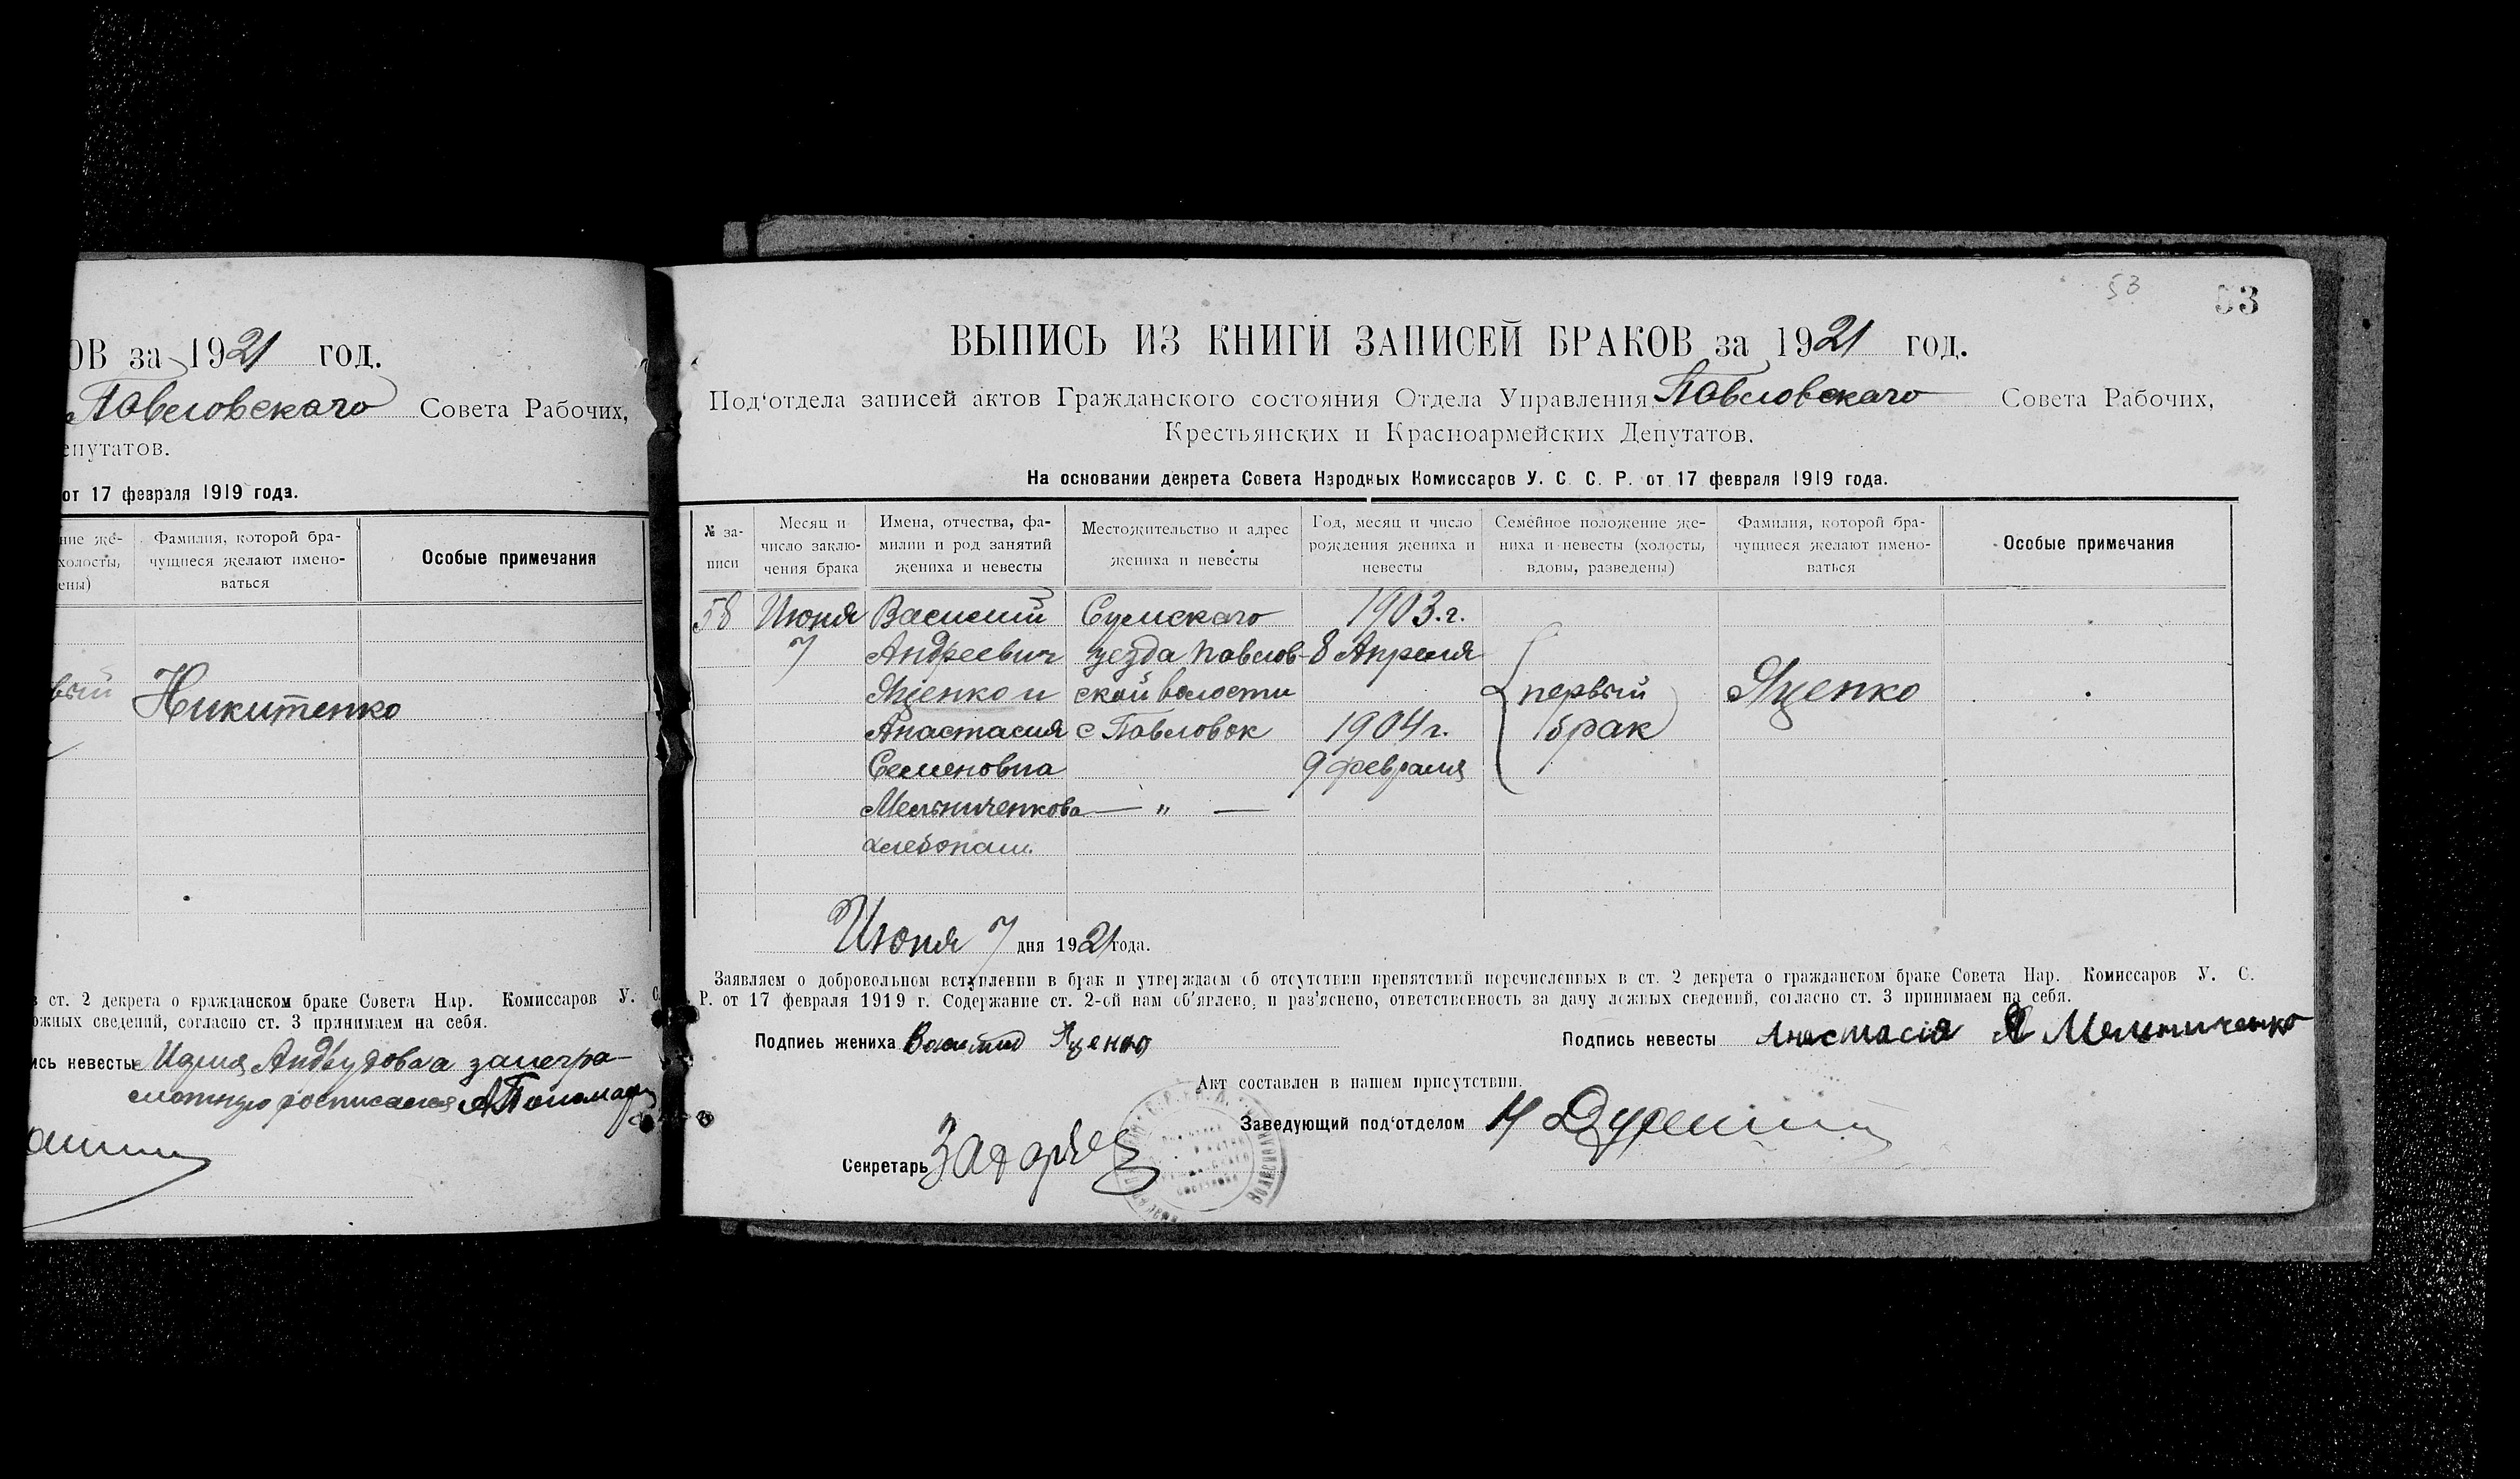 ОВ за 1921 год.
Павловскаго Совета Рабочих,
епутатов.
от 17 февраля 1919 года.
ние же-
холосты,
ены)
Фамилия, которой бра-
чущиеся желают имено-
ваться
Особые примечания
вый
Никитенко
в ст. 2 декрета о гражданском браке Совета Нар. Комиссаров У. С.
ожных сведений, согласно ст. 3 принимаем на себя.
ись невесты
Андрудовна занегра-
мотную росписался
53
53
ВЫПИСЬ ИЗ КНИГИ ЗАПИСЕЙ БРАКОВ за 1921 год.
Под'отдела записей актов Гражданского состояния Отдела Управления Павловскаго Совета Рабочих,
Крестьянских и Красноармейских Депутатов.
На основании декрета Совета Народных Комиссаров У. С. С. Р. от 17 февраля 1919 года.
№ за-
писи
Месяц и
число заклю-
чения брака
Имена, отчества, фа-
милии и род занятий
жениха и невесты
Местожительство и адрес
жениха и невесты
Год, месяц и число
рождения жениха и
невесты
Семейное положение же-
ниха и невесты (холосты,
вдовы, разведены)
Фамилия, которой бра-
чущиеся желают имено-
ваться
Особые примечания
58 Июня Василий Сумскаго 1903.г.
7 Андреевич уезда Павлов- 8 Апреля
Яценко и ской волости первый Яценко
Анастасия с Павловок 1904 г. брак
Семеновна 9 февраля
Мельниченкова — " —
хлебопаш.
Июня 7 дня 1921 года.
Заявляем о добровольном вступлении в брак и утверждаем об отсутствии препятствий перечисленных в ст. 2 декрета о гражданском браке Совета Нар. Комиссаров У. С.
Р. от 17 февраля 1919 г. Содержание ст. 2-ой нам об'явлено, и раз'яснено, ответственность за дачу ложных сведений, согласно ст. 3 принимаем на себя.
Подпись жениха Яценко
Подпись невесты Анастасія Мельниченко
Акт составлен в нашем присутствии.
Заведующий под'отделом
Секретарь